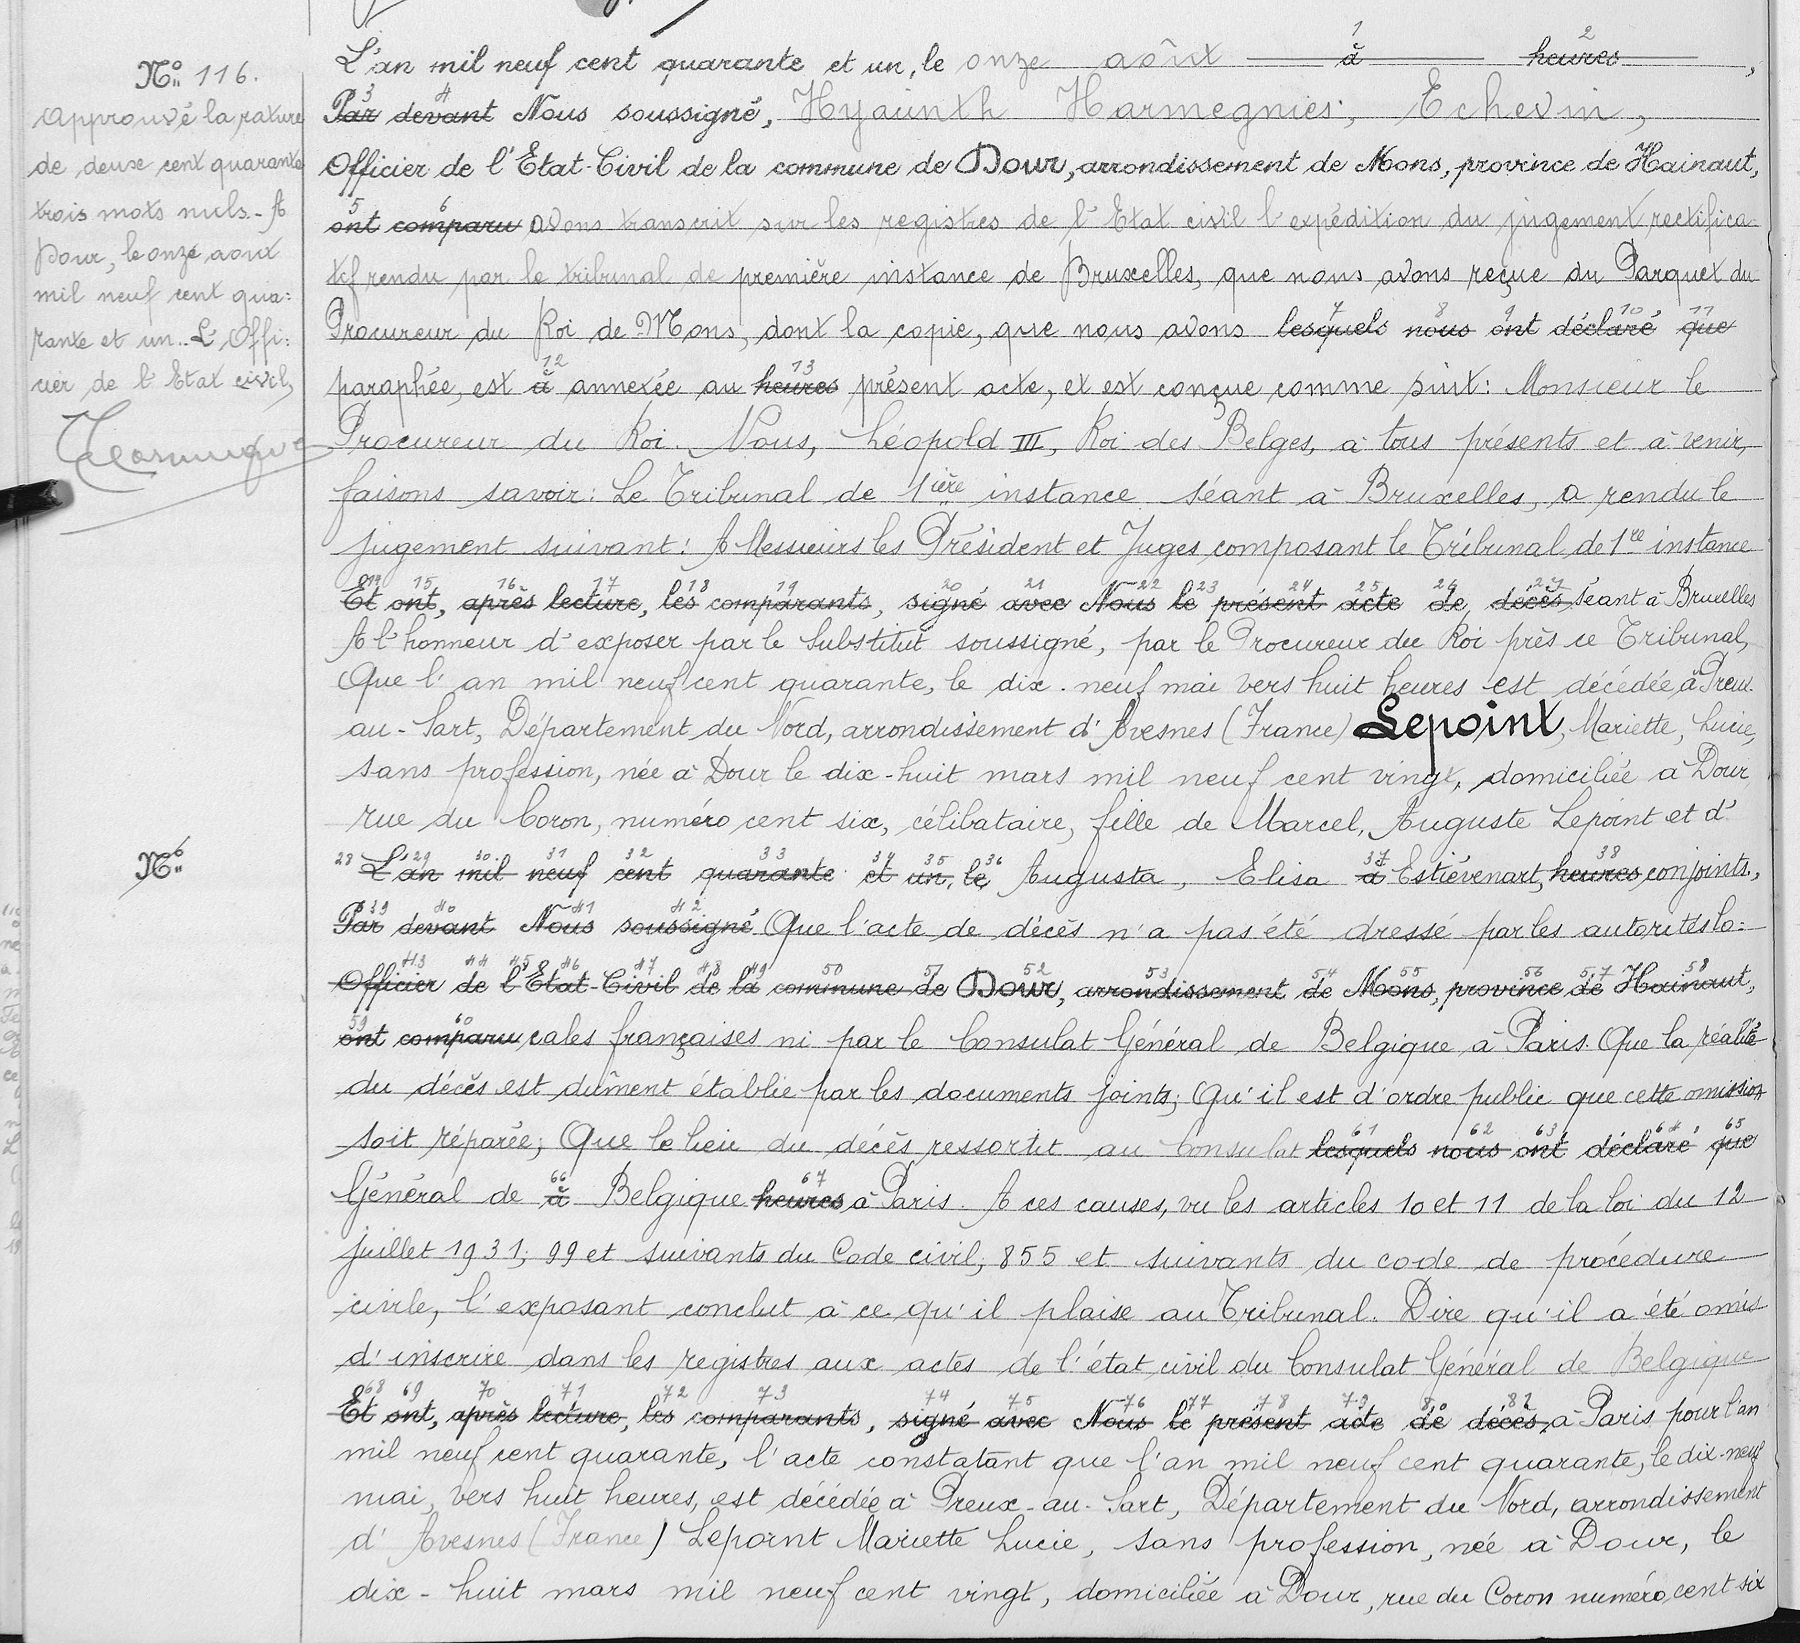 N° 116.
Approuvé la rature
de deux cent quarante
trois mots nuls.- A
Dour, le onze aout
mil neuf cent qua:
rante et un.. L'Offi:
cier de l'Etat civil,
N°
1 2
L'an mil neuf cent quarante et un, le onze août à heures,
3 4
Par devant Nous soussigné, Hyacinth Harmegnies, Echevin,
Officier de l'Etat-Civil de la commune de Dour, arrondissement de Mons, province de Hainaut,
5 6
ont comparu avons transcrit sur les registres de l'Etat civil l'expédition du jugement rectifica-
tif rendu par le tribunal de première instance de Bruxelles, que nous avons reçue du Parquet du
7 8 9 10 11
Procureur du Roi de Mons, dont la copie, que nous avons lesquels nous ont déclaré que
12 13
paraphée, est à annexée au heures présent acte, et est conçue comme suit: Monsieur le
Procureur du Roi. Nous, Léopold III, Roi des Belges, à tous présents et à venir,
faisons savoir: Le Tribunal de 1ière instance séant à Bruxelles, a rendu le
jugement suivant: A Messieurs les Président et Juges composant le Tribunal de 1re instance
14 15 16 17 18 19 20 21 22 23 24 25 26 27
Et ont, après lecture, les comparants, signé avec Nous le présent acte de décès, séant à Bruxelles
A l'honneur d'exposer par le Substitut soussigné, par le Procureur du Roi près ce Tribunal,
Que l'an mil neuf cent quarante, le dix-neuf mai vers huit heures est décédée à Preux-
au-Sart, Département du Nord, arrondissement d'Avesnes (France) Lepoint, Mariette, Lucie,
sans profession, née à Dour le dix-huit mars mil neuf cent vingt, domiciliée à Dour
rue du Coron, numéro cent six, célibataire, fille de Marcel, Auguste Lepoint et d'
28 29 30 31 32 33 34 35 36 37 38
L'an mil neuf cent quarante et un, le Augusta, Elisa à Estiévenart, heures conjoints.,
39 40 41 42
Par devant Nous soussigné Que l'acte de décès n'a pas été dressé par les autorités lo:
43 44 45 46 47 48 49 50 51 52 53 54 55 56 57 58
Officier de l'Etat-Civil de la commune de Dour, arrondissement de Mons, province de Hainaut,
59 60
ont comparu cales françaises ni par le Consulat Général de Belgique à Paris. Que la réalité
du décès est dûment établie par les documents joints; Qu'il est d'ordre public que cette omission
61 62 63 64 65
soit réparée; Que le lieu du décès ressortit au Consulat lesquels nous ont déclaré que
66 67
Général de à Belgique heures à Paris. A ces causes, vu les articles 10 et 11 de la loi du 12
juillet 1931; 99 et suivants du Code civil, 855 et suivants du code de procédure
civile, l'exposant conclut à ce qu'il plaise au Tribunal. Dire qu'il a été omis
d'inscrire dans les registres aux actes de l'état civil du Consulat Général de Belgique
68 69 70 71 72 73 74 75 76 77 78 79 80 81
Et ont, après lecture, les comparants, signé avec Nous le présent acte de décès, à Paris pour l'an
mil neuf cent quarante, l'acte constatant que l'an mil neuf cent quarante, le dix-neuf
mai, vers huit heures, est décédée à Preux-au-Sart, Département du Nord, arrondissement
d'Avesnes (France) Lepoint Mariette Lucie, sans profession, née à Dour, le
dix-huit mars mil neuf cent vingt, domiciliée à Dour, rue du Coron numéro cent six